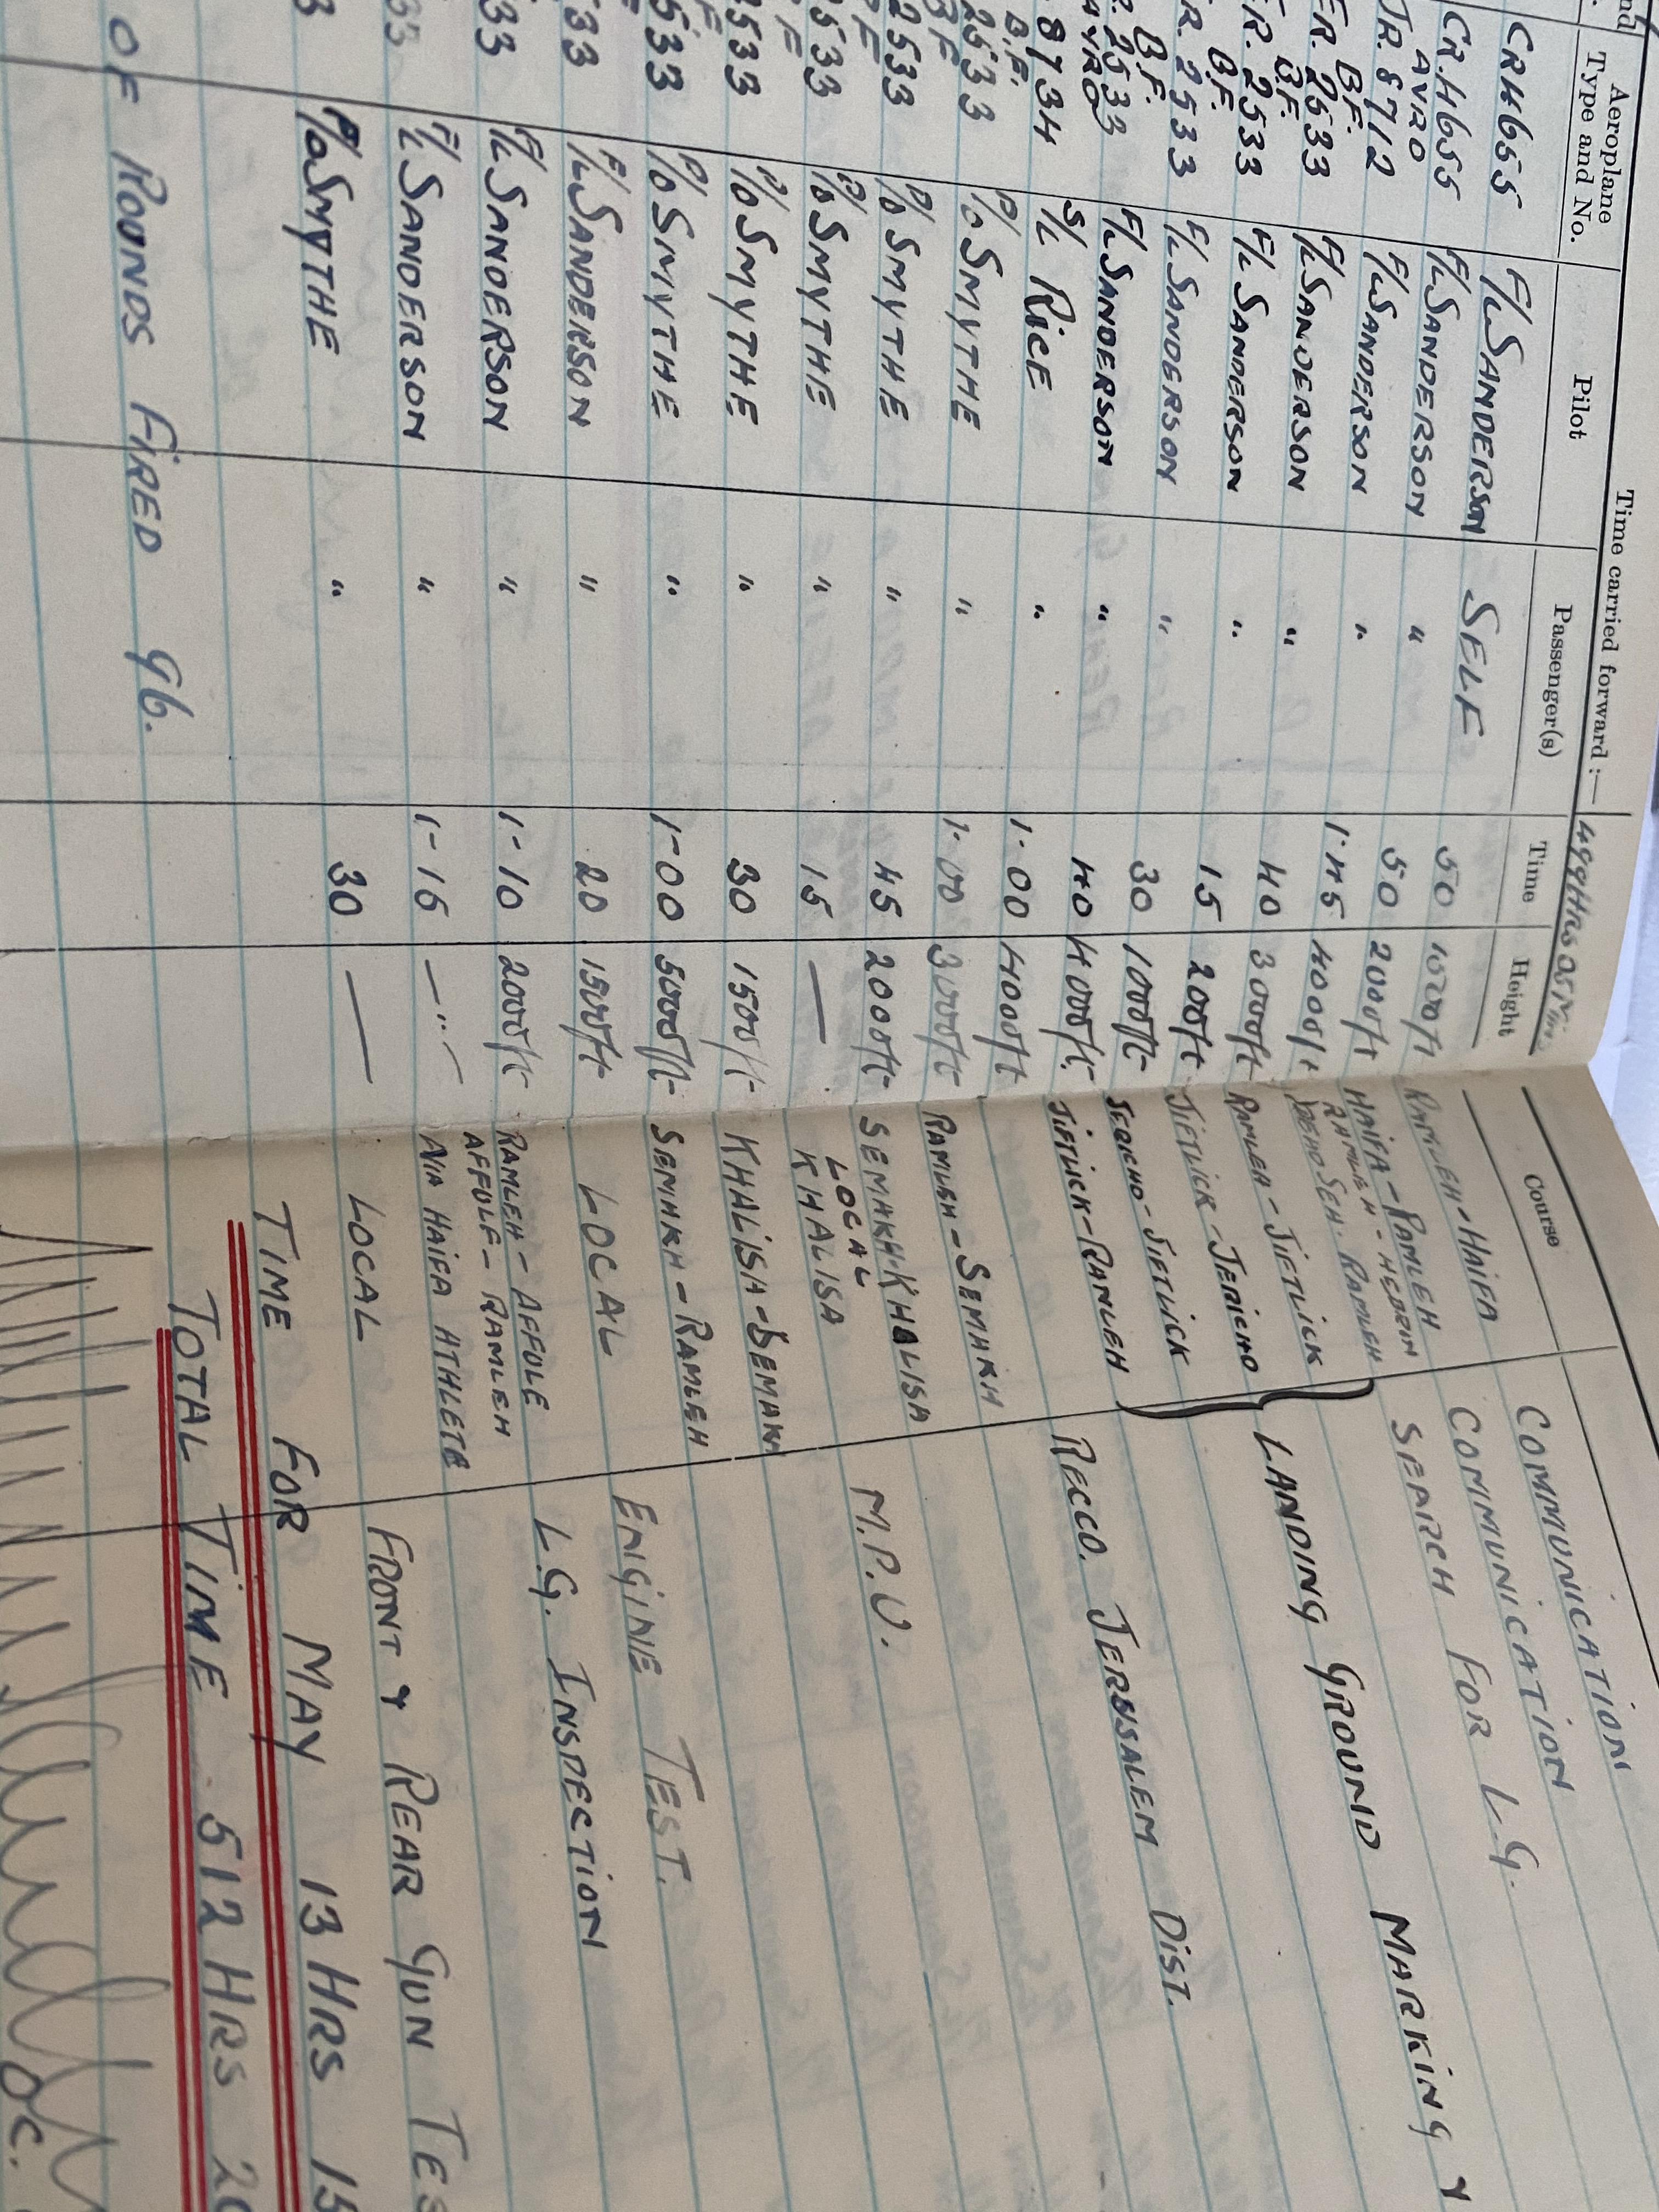 Time carried forward :— 499 Hrs 05 Min
Aeroplane Type and No. Pilot Passenger(s) Time Height Course
CRH655 F/L SANDERSON SELF 50 1500/ft RAMLEH-HAIFA COMMUNICATION
CR.H655 F/L SANDERSON " 50 2000/ft HAIFA-RAMLEH COMMUNICATION
AVRO
JR.8712 F/L SANDERSON " 1·45 4000/ft RAMLEH-HEBRON SEARCH FOR L.G.
SEH. RAMLEH
B.F.
ER.2533 F/L SANDERSON " 40 3000/ft RAMLEH-JIFTLICK
B.F.
ER.2533 F/L SANDERSON " 15 200/ft JIFTLICK-JERICHO LANDING GROUND MARKING &
B.F.
R.2533 F/L SANDERSON " 30 1000/ft JERICHO-JIFTLICK
B.F.
R.2533 F/L SANDERSON " 40 4000/ft. JIFTLICK-RAMLEH
AVRO
8734 S/L RICE " 1·00 4000/ft RECCO. JERUSALEM DIST.
B.F.
2533 P/O SMYTHE " 1·00 3000/ft RAMLEH-SEMAKH
B F
2533 P/O SMYTHE " 45 2000/ft SEMAKH-KHALISA M.P.U.
LOCAL
F
2533 P/O SMYTHE " 15 — KHALISA
F
2533 P/O SMYTHE " 30 1500/ft KHALISA-SEMAKH
F
2533 P/O SMYTHE " 1-00 5000/ft SEMAKH-RAMLEH
533 F/L SANDERSON " 20 1500/ft LOCAL ENGINE TEST.
533 F/L SANDERSON " 1-10 2000/ft RAMLEH-AFFULE L.G. INSPECTION
AFFULE-RAMLEH
533 F/L SANDERSON " 1-15 —"— VIA HAIFA ATHLETE
3 P/O SMYTHE " 30 — LOCAL FRONT & REAR GUN TES
TIME FOR MAY 13 HRS 15
OF ROUNDS FIRED 96.
TOTAL TIME 512 HRS 20
OC.